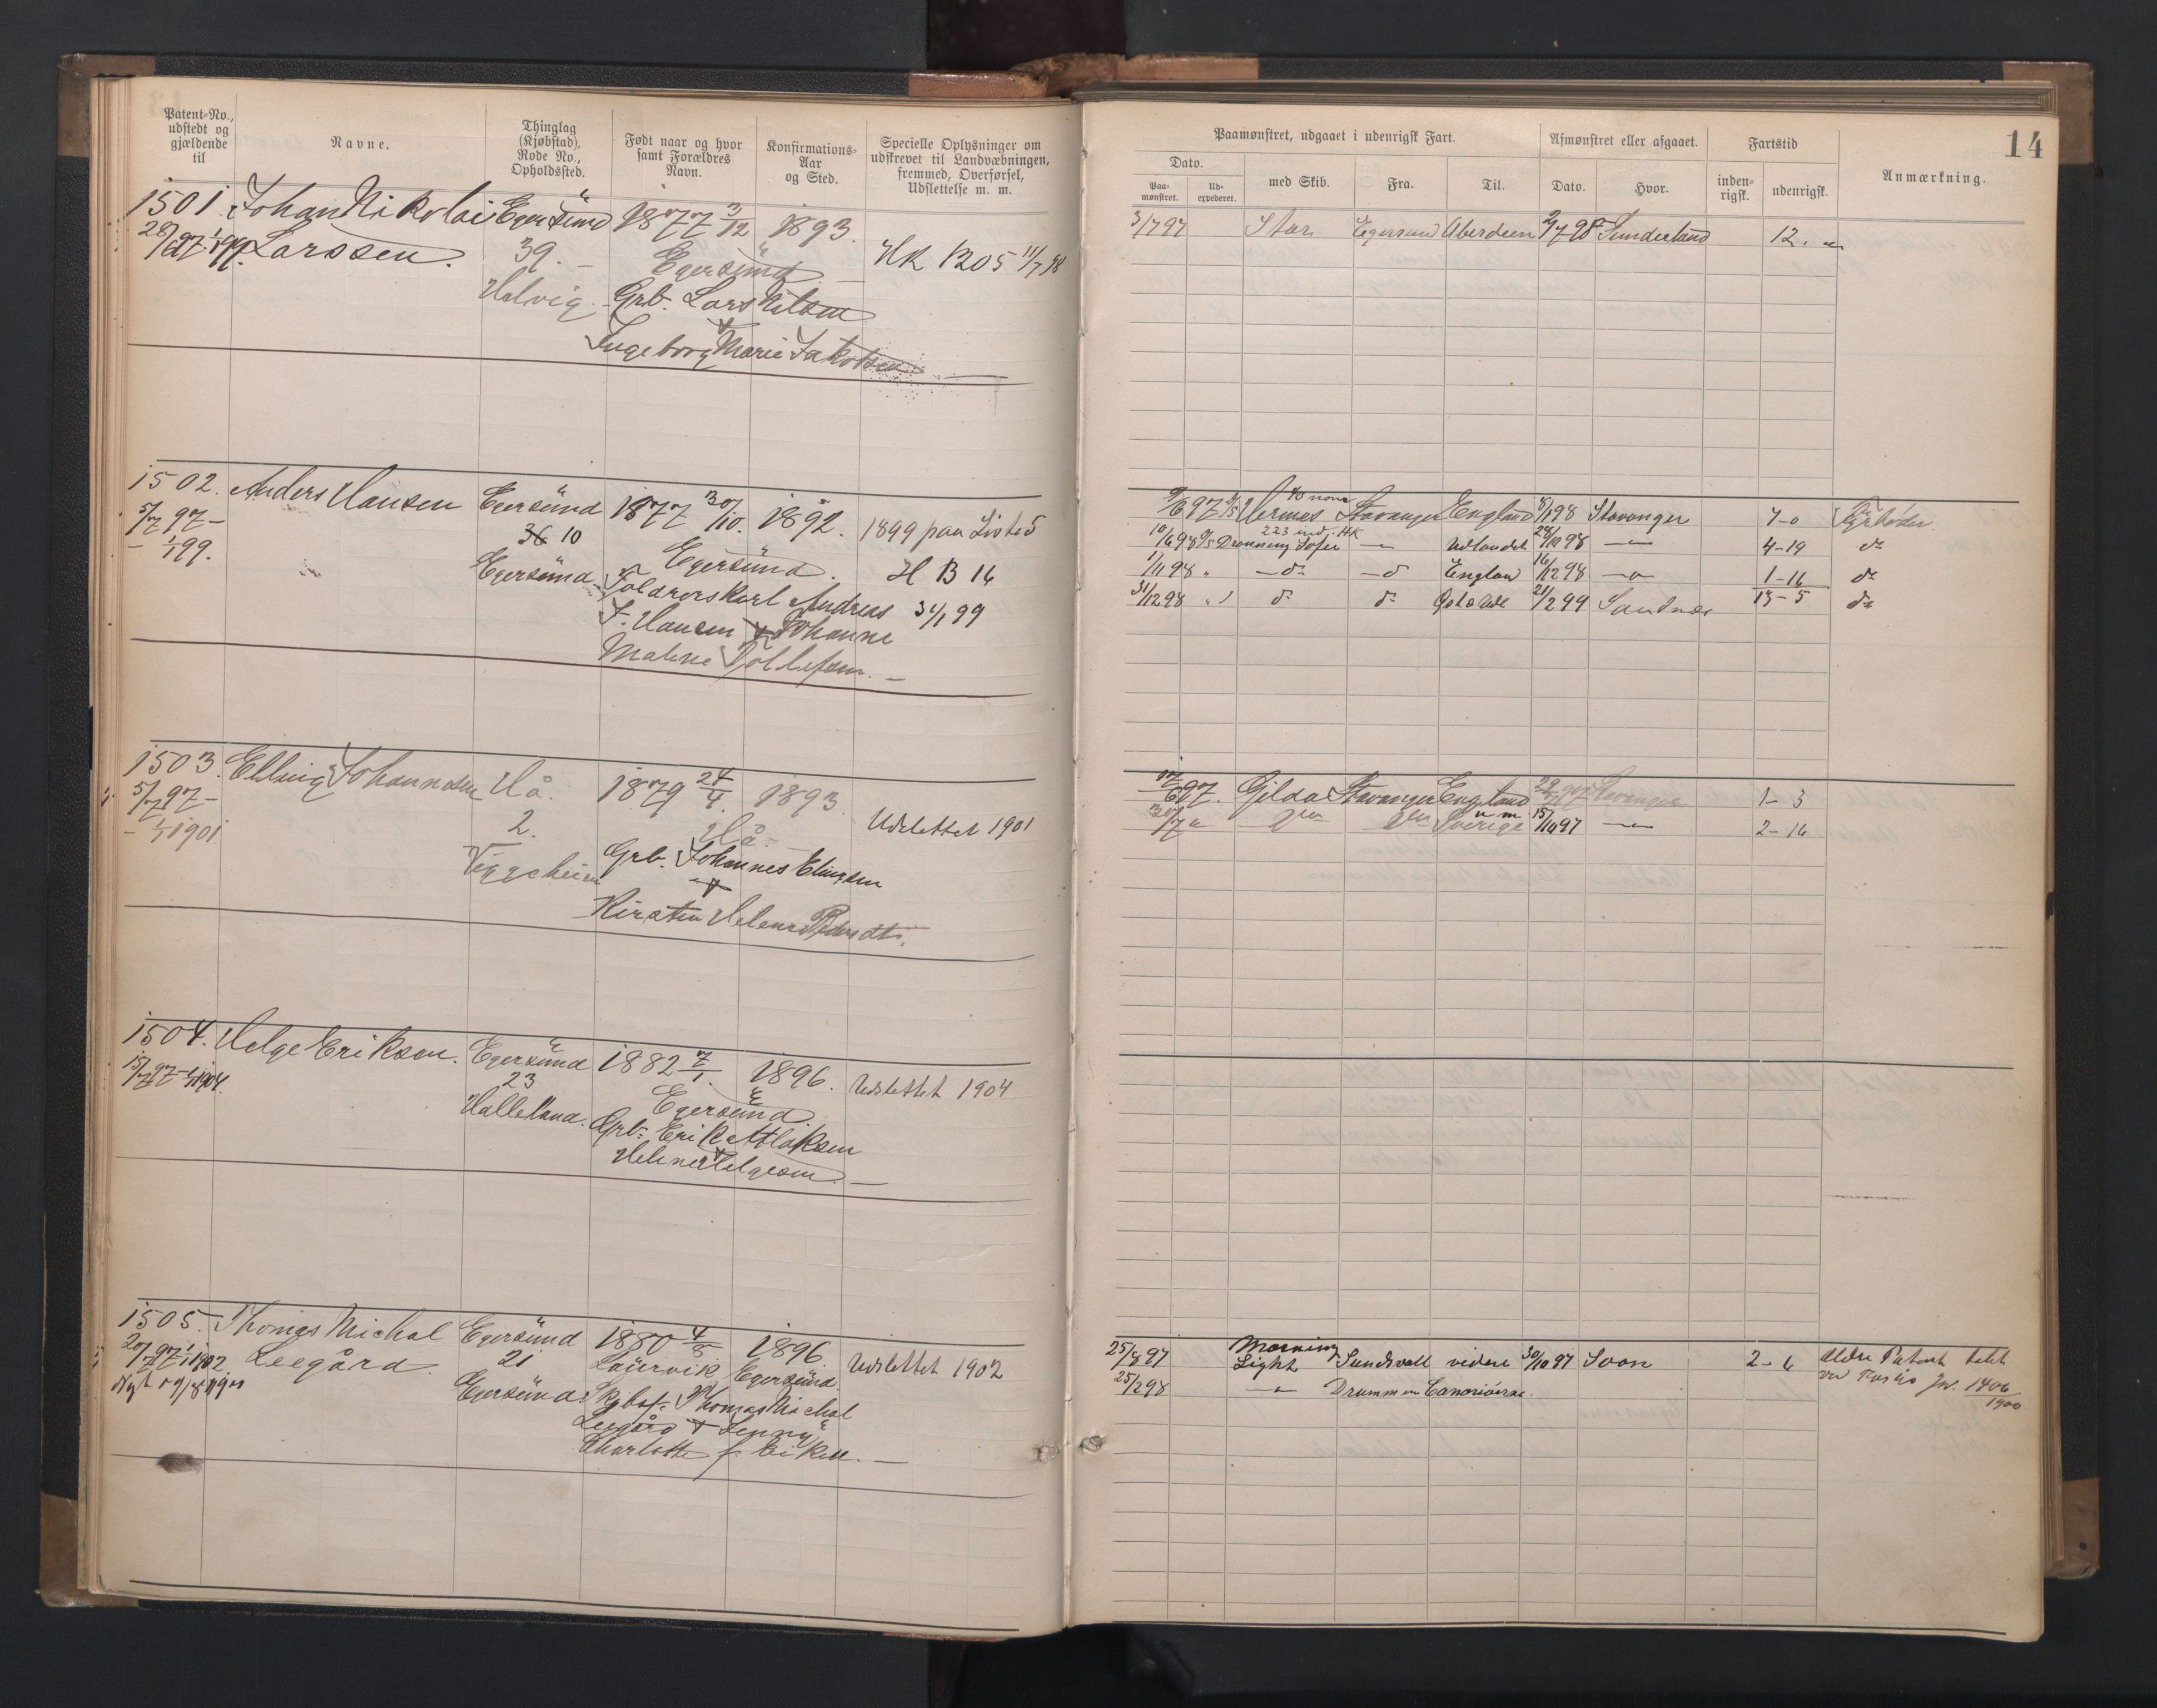 Patent-No., udstedt og gjældende til
Navne.
Thinglag (Kjøbstad), Rode No., Opholdssted.
Født naar og hvor samt Forældres Navn.
Konfirmations-Aar og Sted.
Specielle Oplysninger om udskrevet til Landvæbningen, fremmed, Overførsel, Udslettelse m. m.
1501. Johan Nikolai Egersund 1877 3/12 1893.
Larssen. 39. Egersund HK 1205 11/7 98
Helvig. Grb. Lars Nilsen
+
Ingeborg Marie Jakobsen
1502. Anders Hansen Egersund 1877 30/10. 1892. 1899 paa Liste 5
5/7 97 – 36 10 Egersund. H B 16
– 1/1 99. Egersund Toldrorskarl Andreas 31/1 99
J. Hansen + Johanne
Malene Tollefsen. –
1503. Elling Johannesen Hå. 1879 24/4. 1893.
5/7 97 – 2. Hå. Udslettet 1901
– 1/1 1901 Viggeheim Grb. Johannes Elingsen
+
Kirsten Helene
1504. Helge Eriksen. Egersund 1882 7/1. 1896. Udslettet 1904
15/7 97 – 1/1 1904. 23 Egersund
Helleland. Grb. Erik Atlaksen
+
Helene Helgesen. –
1505. Thomas Michal Egersund 1880 4/5 1896
20/7 97 1/1 1902 Leegård. 21 Laurvik Egersund. Udslettet 1902
Egersund Thomas Michal
Leegård + Jenny
Charlotte f. Eiken. –
14
Paamønstret, udgaaet i udenrigsk Fart.
Afmønstret eller afgaaet.
Fartstid
Dato.
Paa-mønstret.
Ud-expederet.
med Skib.
Fra.
Til.
Dato.
Hvor.
inden-rigsk.
udenrigsk.
Anmærkning.
3/7 97 Star Egersund Aberdeen 2/7 98 Sunderland 12. "
Hermes Stavanger England 8/1 98 Stavanger 7-0
223 ind. HK
10/6 98 Dronning Sofie – " – Udlandet 28/10 98 – " – 4-19 do
1/11 98 " – do – d England 16/12 98 – " – 1-16 do
31/12 98 " do do 21/2 99 Sandnes 13-5 do
17/6 97. Gilda Stavanger England 29/7 97 Stavanger 1-3
30/7 " – Dto Dto Sverige 15/10 97 – " – 2-16
25/8 97 Morning
Light Sundsvall videre 30/10 97 Soon 2-6 Ældre Patent tabt
25/2 98 – " – Drammen Canariøerne. 1406/1900